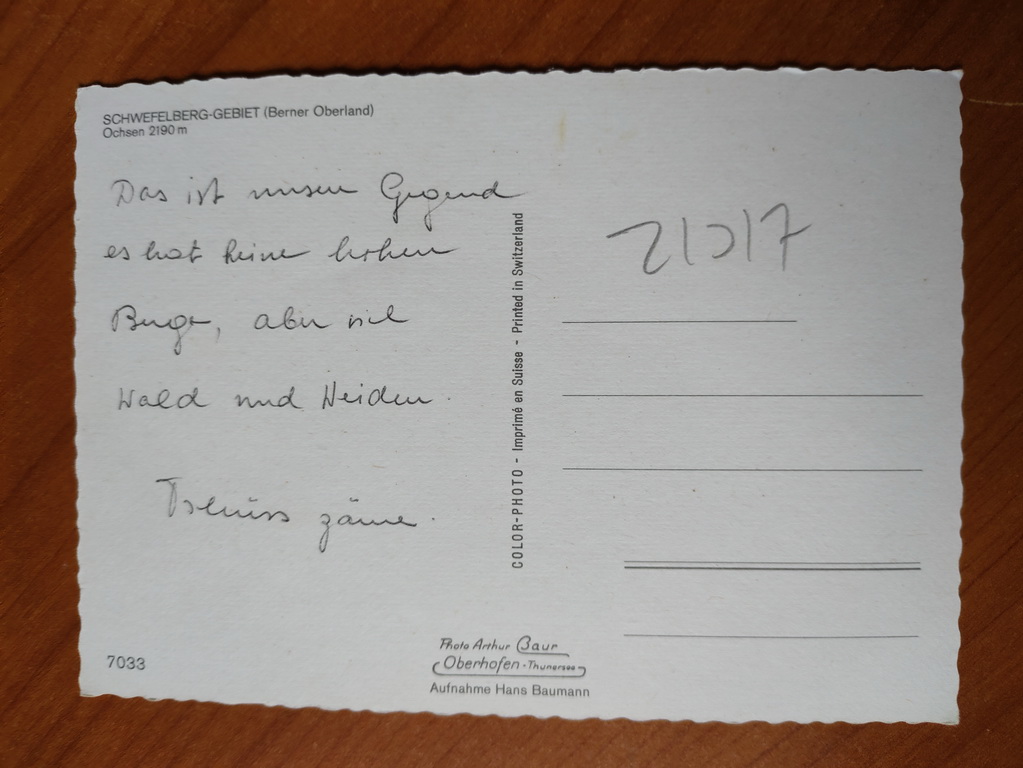 SCHWEFELBERG-GEBIET (Berner Oberland)
Ochsen 2190 m
Das ist unsere Gegend
es hat keine hohen
Berge, aber viel
Wald und Weiden.
Tschüss zäme.
COLOR-PHOTO - Imprimé en Suisse - Printed in Switzerland
7033
Photo Arthur Baur
Oberhofen - Thunersee
Aufnahme Hans Baumann